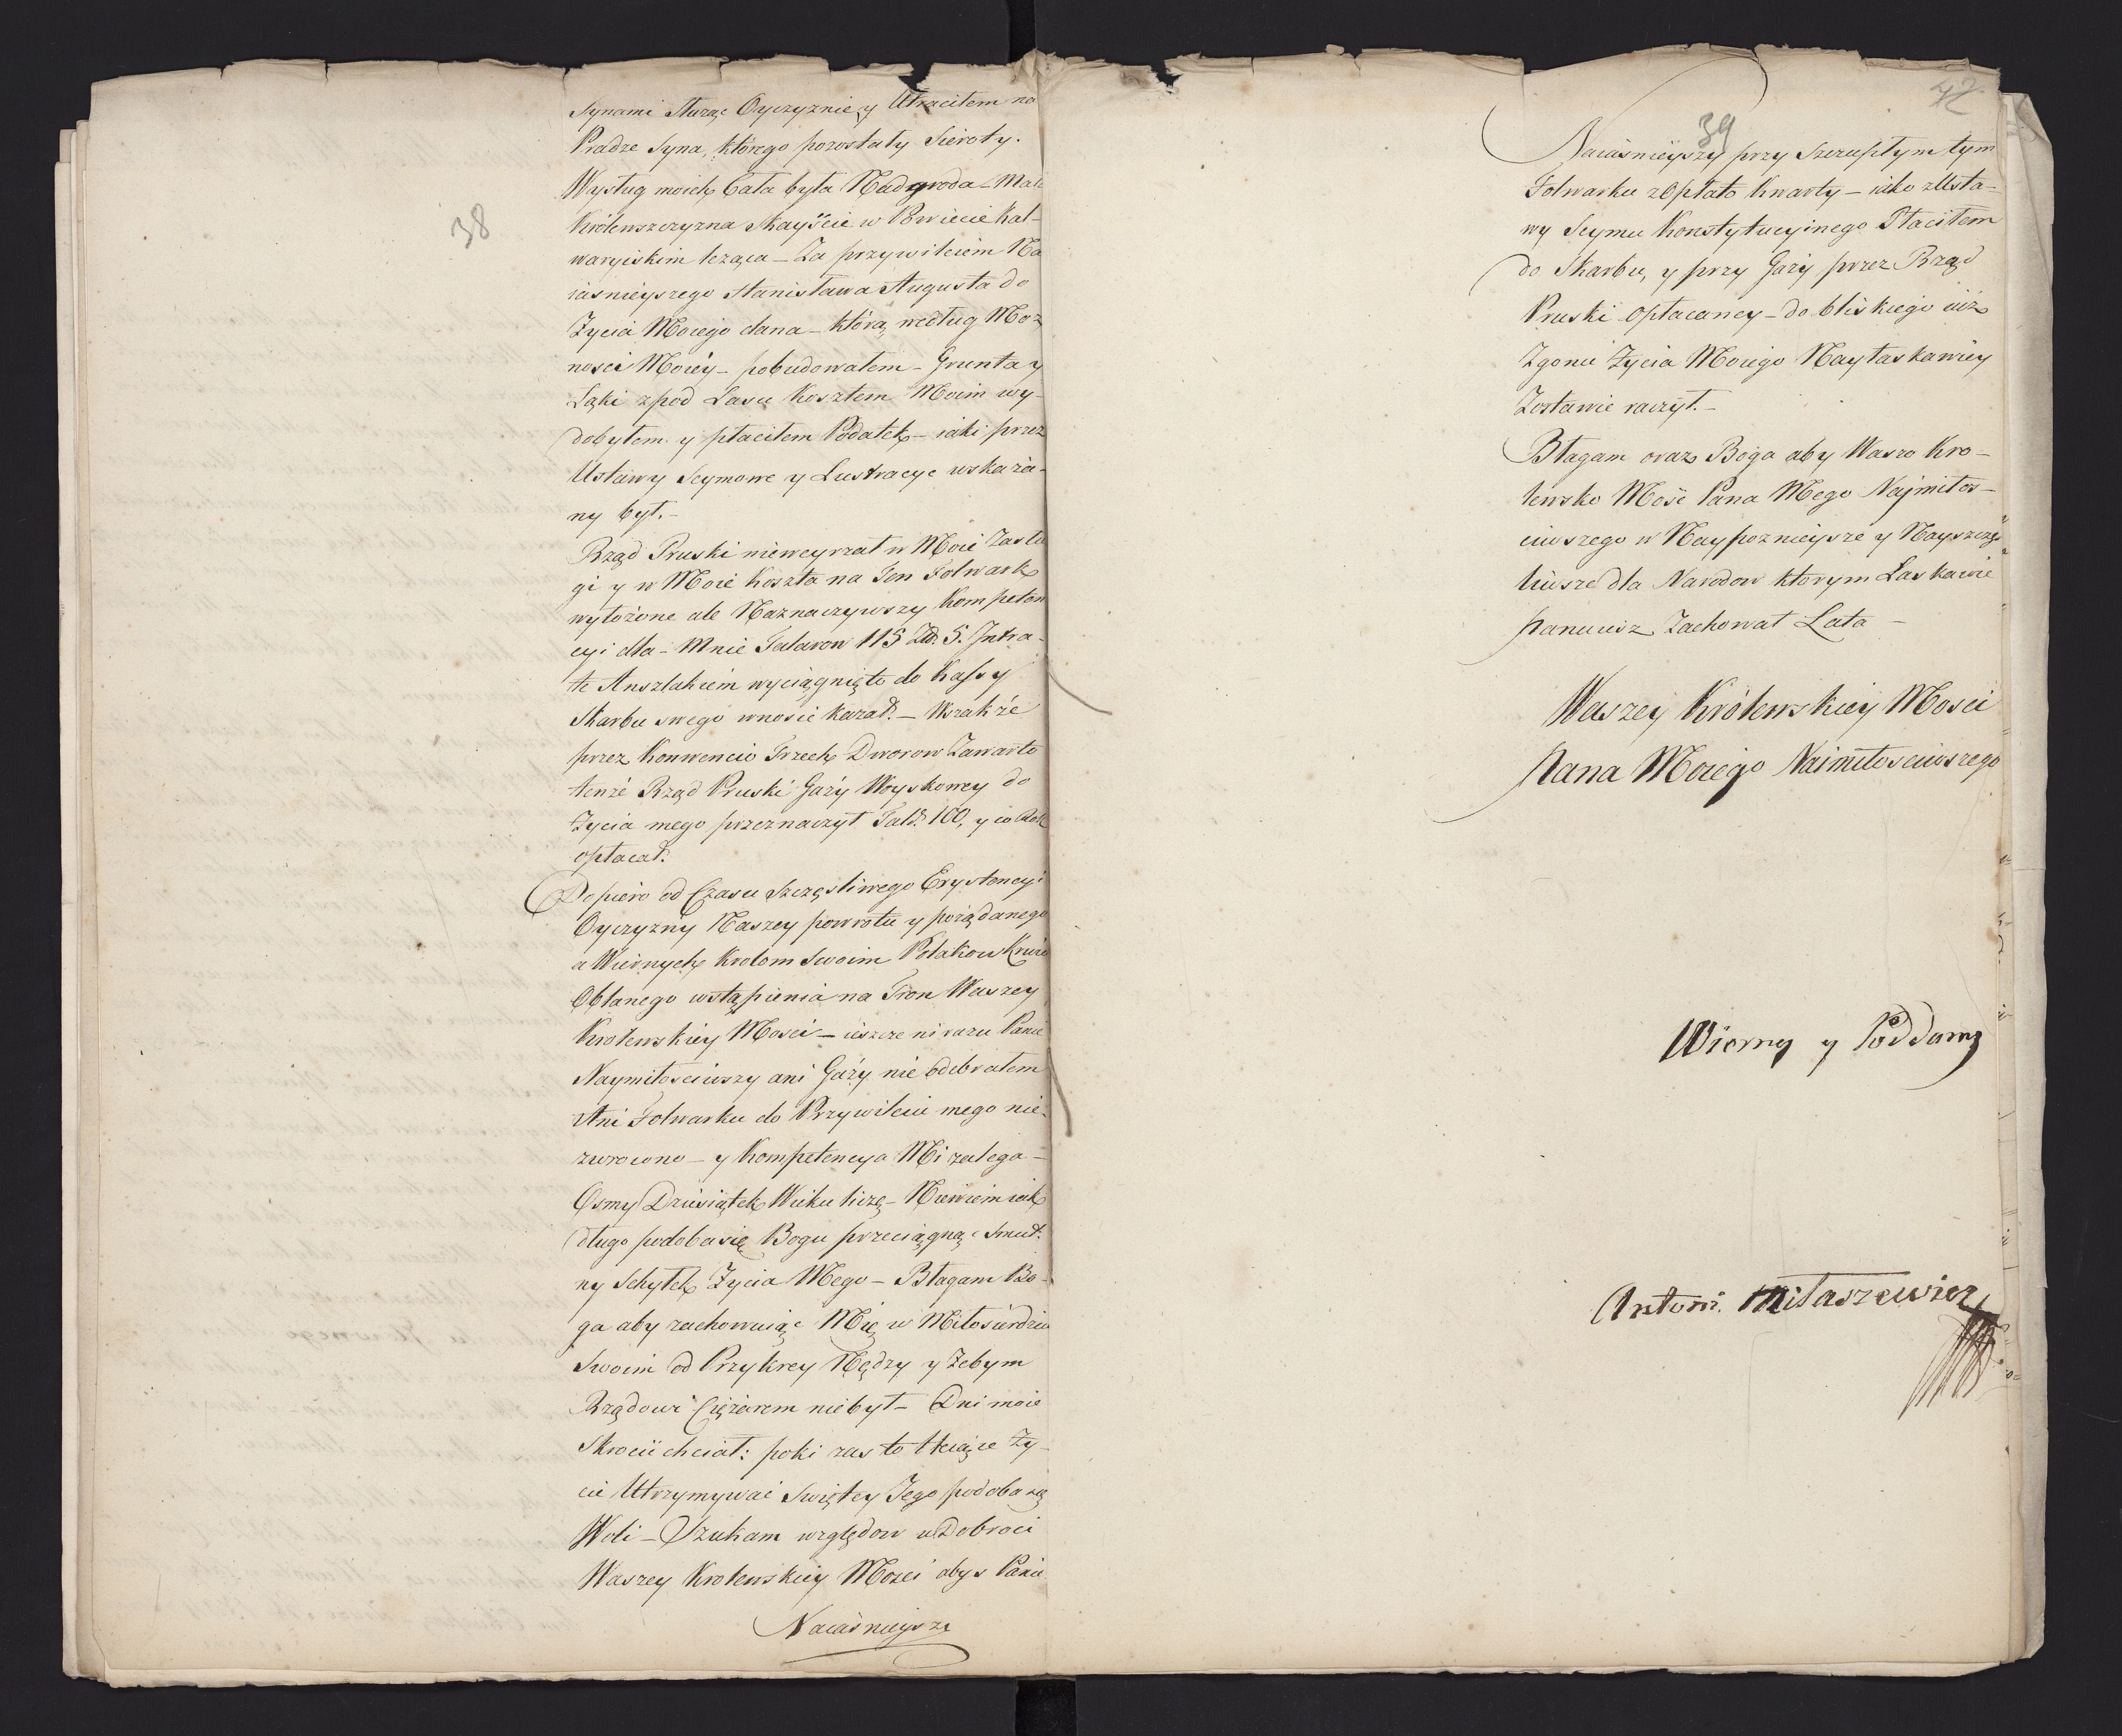 38
Synami Służąc Oyczyznie y Utraciłem na
Pradze Syna, którego pozostały Sieroty.
Wysług moich Cała była Nadgroda Mała
Królewszczyzna Skayście w Powiecie Kal-
waryiskim leząca – Za przywileiem Na
iasnieyszego Stanisława Augusta do
Zycia Moiego dana – którą według Moz
nosci Moiéy – pobudowałem – Grunta y
Łąki zpod Lasu Kosztem Moim wy-
dobyłem y płaciłem Podatek – iaki przez
Ustawy Seymowe y Lustracye wskaza-
ny był. –
Rząd Pruski niewcyrzał w Moie Zasłu
gi y w Moie koszta na Ten Folwark
wyłożone ale Naznaczywszy Kompeten
cyi dla – Mnie Talarow 115 Zld. 5. Intra-
tę Anszlakiem wyciągnięto do Kassy
Skarbu swego wnosić kazał. – Wszakże
przez Konwencio Trzech Dworow Zawarto
tenże Rząd Pruski Gaży Woyskowey do
Zycia mego przeznaczył Tald. 100, y co Rok
opłacał.
Dopiero od Czasu Szczęśliwego Exystencyi
Oyczyzny Naszey powrotu y pożądanego
a Wiernych Krolom Swoim Polakow Krwią
Oblanego wstąpienia na Tron Waszey
Krolewskiey Mosci – ieszcze ni razu Panie
Naymiłosciwszy ani Gaży nie odebrałem
Ani Folwarku do Przywileiu mego nie-
zwrocono – y Kompetencya Mi zalega –
Osmy Dziesiątek Wieku liczę – Niewiem iak
długo podoba się Bogu przeciągnąc Smut-
ny Schyłek Zycia Mego – Błagam Bo-
ga aby zachowuiąc Mię w Miłosierdziu
Swoim od Przykrey Nędzy y Zebym
Rządowi Ciężarem niebył – Dni moie
Skrocić chciał: poki zas to tleiące Ży-
cie Utrzymywać Swiętey Jego podoba się
Woli – Szukam względow u Dobroci
Waszey Krolewskiey Mosci abys Panie
Naiasnieyszy
42
39
Naiasnieyszy przy Szczupłym tym
Folwarku zOpłato kwarty – iako zUsta-
wy Seymu Konstytucyinego Płaciłem
do Skarbu, y przy Gaży przez Rząd
Pruski Opłacaney – do bliskiego iuż
Zgonu Zycia Moiego Nayłaskawiey
Zostawic raczył. –
Błagam oraz Boga aby Waszo Kro-
lewsko Mość Pana Mego Najmiłos-
ciwszego w Naypoznieysze y Nayszczę-
liwsze dla Narodow ktorym Łaskawie
panuiesz Zachował Lata –
Waszey Królewskiey Mosci
Pana Moiego Naimiłosciwszego
Wierny y Poddany
Antoni Miłaszewicz